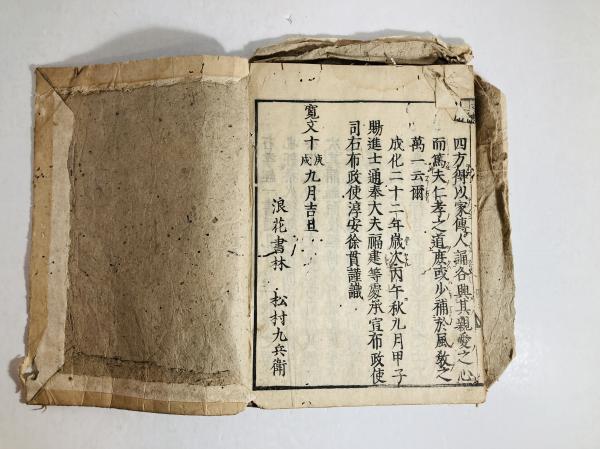 四方得以家傳人誦各與其親愛之心
而篤夫仁孝之道庶或少補於風教之
萬一云爾
成化二十二年歲次丙午秋九月甲子
賜進士通奉大夫福建等處承宣布政使
司右布政使淳安徐貫謹識
寛文十庚戌九月吉旦
浪花書林 松村九兵衛